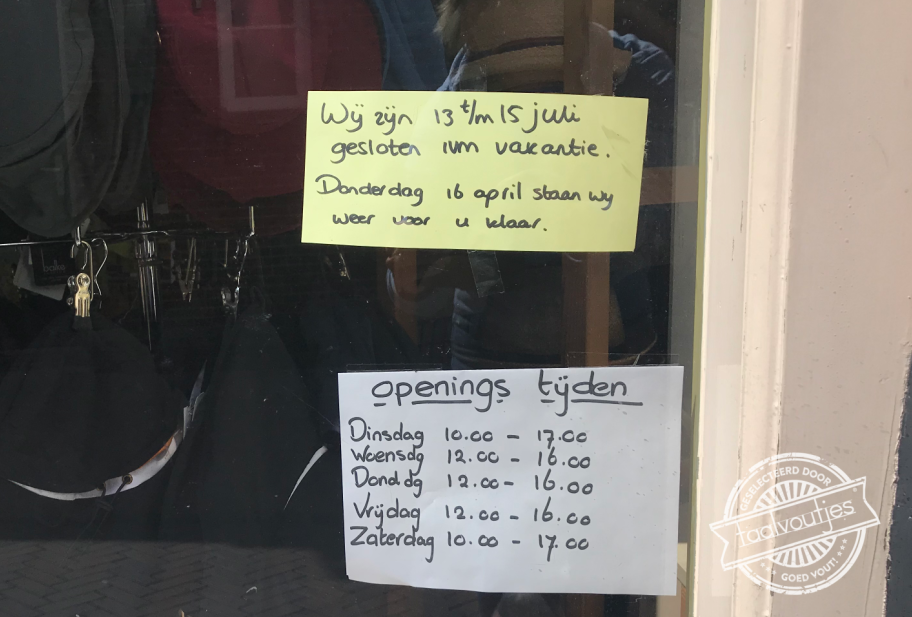 Wij zijn 13 t/m 15 juli
gesloten ivm vakantie.
Donderdag 16 april staan wij
weer voor u klaar.
openings tijden
Dinsdag 10.00 - 17.00
Woensdg 12.00 - 16.00
Dond.dg 12.00 - 16.00
Vrijdag 12.00 - 16.00
Zaterdag 10.00 - 17.00
GESELECTEERD DOOR
taalvoutjes
GOED VOUT!